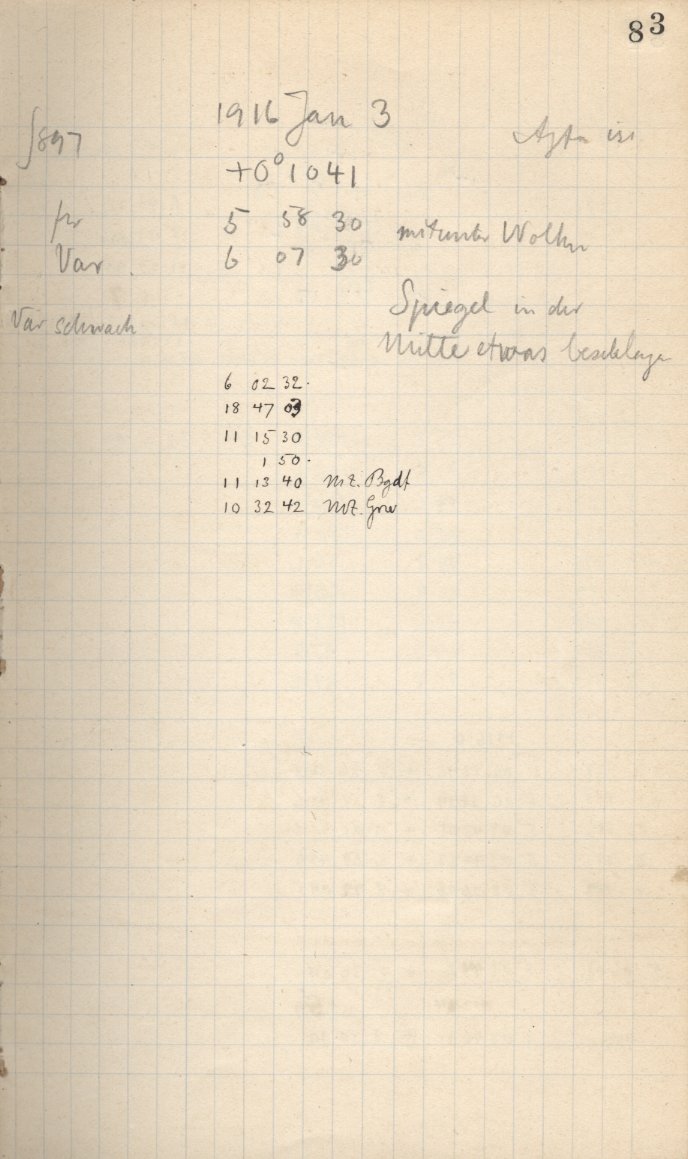 83
1916 Jan 3
897
Agfa iso
+0° 1041
fr 5 58 30 mitunter Wolken
Var 6 07 30
Spiegel in der
Var schwach
Mitte etwas beschlagen
6 02 32.
18 47 03
11 15 30
1 50.
11 13 40 MZ. Bgdf
10 32 42 MZ. Grw